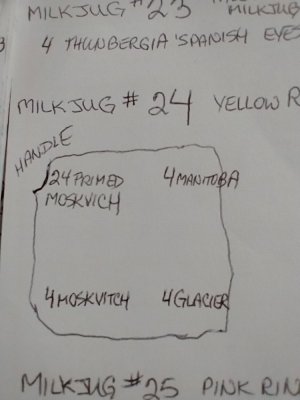 MILKJUG #23 MILKJUG
3
4 THUNBERGIA 'SPANISH EYES
MILKJUG # 24 YELLOW R
HANDLE
24 PRIMED 4 MANITOBA
MOSKVICH
4 MOSKVITCH 4 GLACIER
MILKJUG #25 PINK RIN